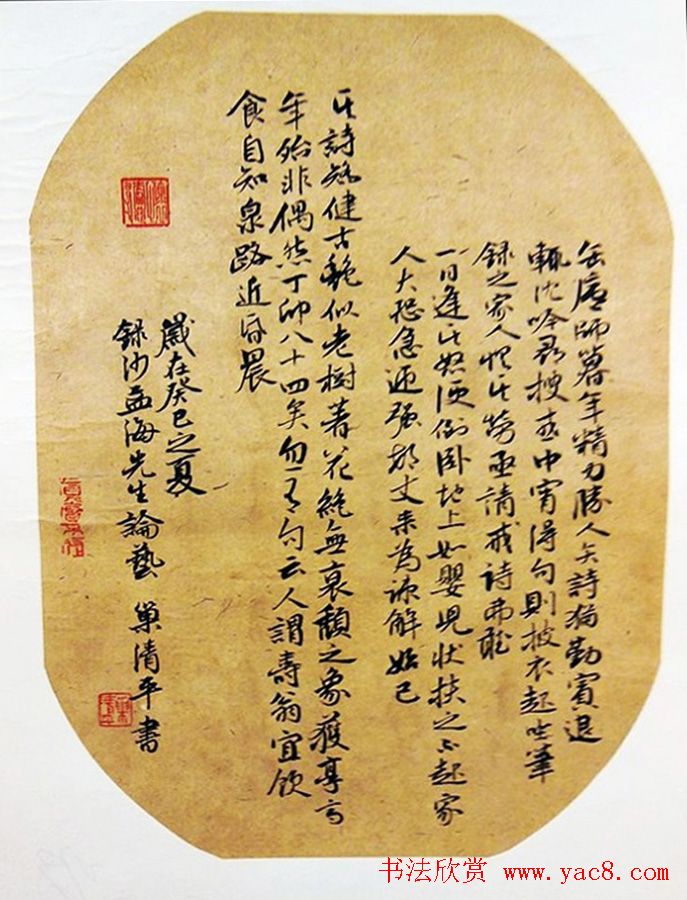 缶廬師暮年精力勝人矢詩猶勤賓退
輒沈吟搜或中宵得句則披衣起呼筆
錄之家人惧其勞亟請戒詩弗聽
一日逢其怒便倒卧地上如嬰兒狀扶之不起家
人大恐急迎強邨丈來為諒解始已
其詩矯健古艷似老樹著花絕無衰頹之象獲享高
年殆非偶然丁卯八十四矣句云人謂壽翁宜飲
食自知泉路近昏晨
歲在癸巳之夏
錄沙孟海先生論藝 巢清平書
书法欣赏 www.yac8.com